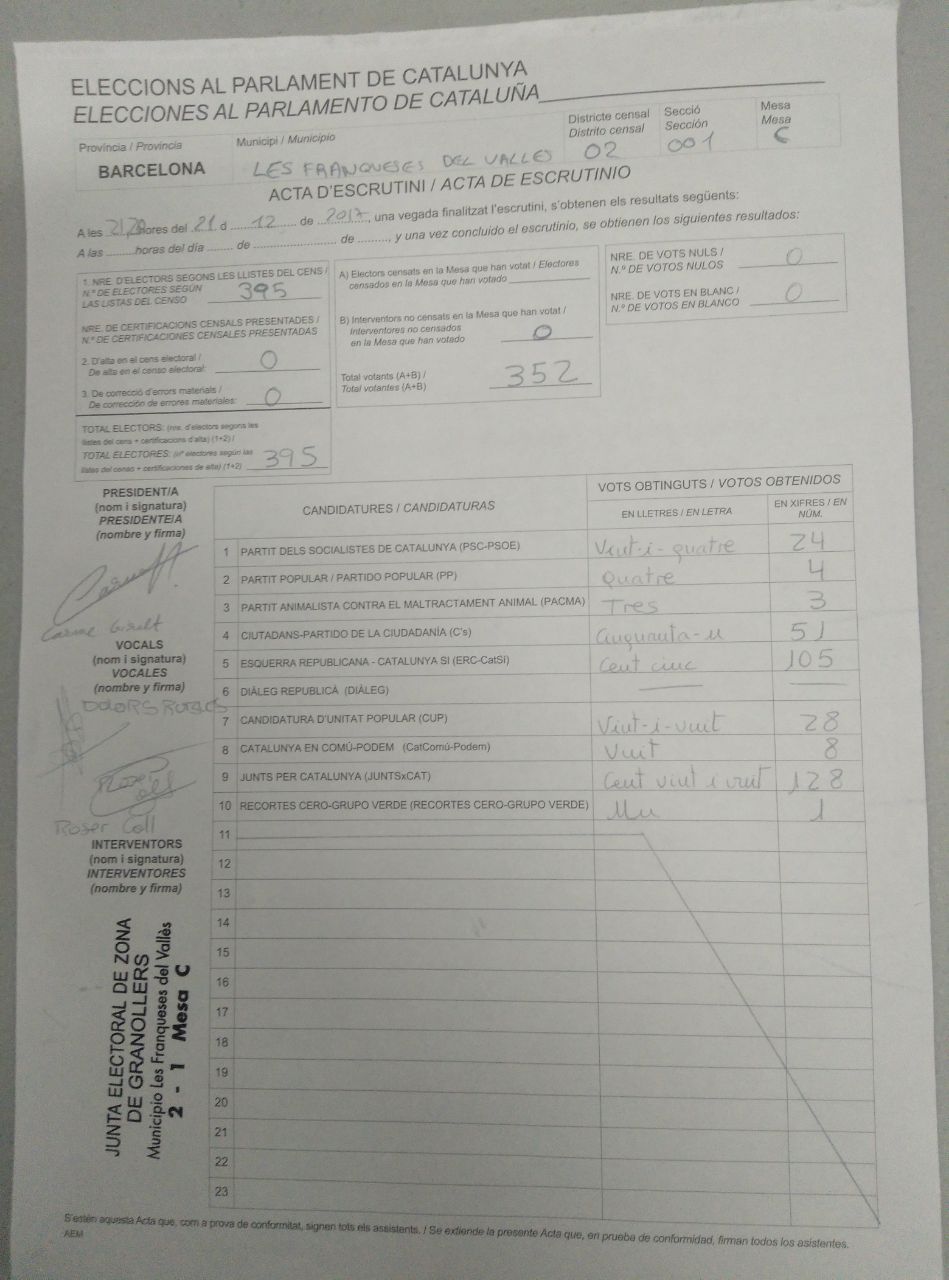 ELECCIONS AL PARLAMENT DE CATALUNYA
ELECCIONES AL PARLAMENTO DE CATALUÑA
Província / Provincia
BARCELONA
Municipi / Municipio
LES FRANQUESES DEL VALLES
Districte censal
Distrito censal
02
Secció
Sección
001
Mesa
Mesa
C
ACTA D'ESCRUTINI / ACTA DE ESCRUTINIO
A les hores del 21 d 12 de 2017, una vegada finalitzat l'escrutini, s'obtenen els resultats següents:
A las ........ horas del día ....... de ..................... de ........, y una vez concluido el escrutinio, se obtienen los siguientes resultados:
1. NRE. D'ELECTORS SEGONS LES LLISTES DEL CENS /
N.º DE ELECTORES SEGÚN
LAS LISTAS DEL CENSO 395
NRE. DE CERTIFICACIONS CENSALS PRESENTADES /
N.º DE CERTIFICACIONES CENSALES PRESENTADAS
2. D'alta en el cens electoral /
De alta en el censo electoral: 0
3. De correcció d'errors materials /
De corrección de errores materiales: 0
TOTAL ELECTORS: (nre. d'electors segons les
llistes del cens + certificacions d'alta) (1+2) /
TOTAL ELECTORES: (nº electores según las
listas del censo + certificaciones de alta) (1+2) 395
A) Electors censats en la Mesa que han votat / Electores
censados en la Mesa que han votado
B) Interventors no censats en la Mesa que han votat /
Interventores no censados
en la Mesa que han votado 0
Total votants (A+B) /
Total votantes (A+B) 352
NRE. DE VOTS NULS /
N.º DE VOTOS NULOS 0
NRE. DE VOTS EN BLANC /
N.º DE VOTOS EN BLANCO 0
PRESIDENT/A
(nom i signatura)
PRESIDENTE/A
(nombre y firma)
Carme
VOCALS
(nom i signatura)
VOCALES
(nombre y firma)
DOLORS
Roser Coll
INTERVENTORS
(nom i signatura)
INTERVENTORES
(nombre y firma)
JUNTA ELECTORAL DE ZONA
DE GRANOLLERS
Municipio Les Franqueses del Vallès
2 - 1 Mesa C
CANDIDATURES / CANDIDATURAS
VOTS OBTINGUTS / VOTOS OBTENIDOS
EN LLETRES / EN LETRA
EN XIFRES / EN
NÚM.
1 PARTIT DELS SOCIALISTES DE CATALUNYA (PSC-PSOE) Vint-i-quatre 24
2 PARTIT POPULAR / PARTIDO POPULAR (PP) Quatre 4
3 PARTIT ANIMALISTA CONTRA EL MALTRACTAMENT ANIMAL (PACMA) Tres 3
4 CIUTADANS-PARTIDO DE LA CIUDADANÍA (C's) Cinquanta-u 51
5 ESQUERRA REPUBLICANA - CATALUNYA SÍ (ERC-CatSí) Cent cinc 105
6 DIÀLEG REPUBLICÀ (DIÀLEG)
7 CANDIDATURA D'UNITAT POPULAR (CUP) Vint-i-vuit 28
8 CATALUNYA EN COMÚ-PODEM (CatComú-Podem) Vuit 8
9 JUNTS PER CATALUNYA (JUNTSxCAT) Cent vint i vuit 128
10 RECORTES CERO-GRUPO VERDE (RECORTES CERO-GRUPO VERDE) Un 1
11
12
13
14
15
16
17
18
19
20
21
22
23
S'estén aquesta Acta que, com a prova de conformitat, signen tots els assistents. / Se extiende la presente Acta que, en prueba de conformidad, firman todos los asistentes.
AEM